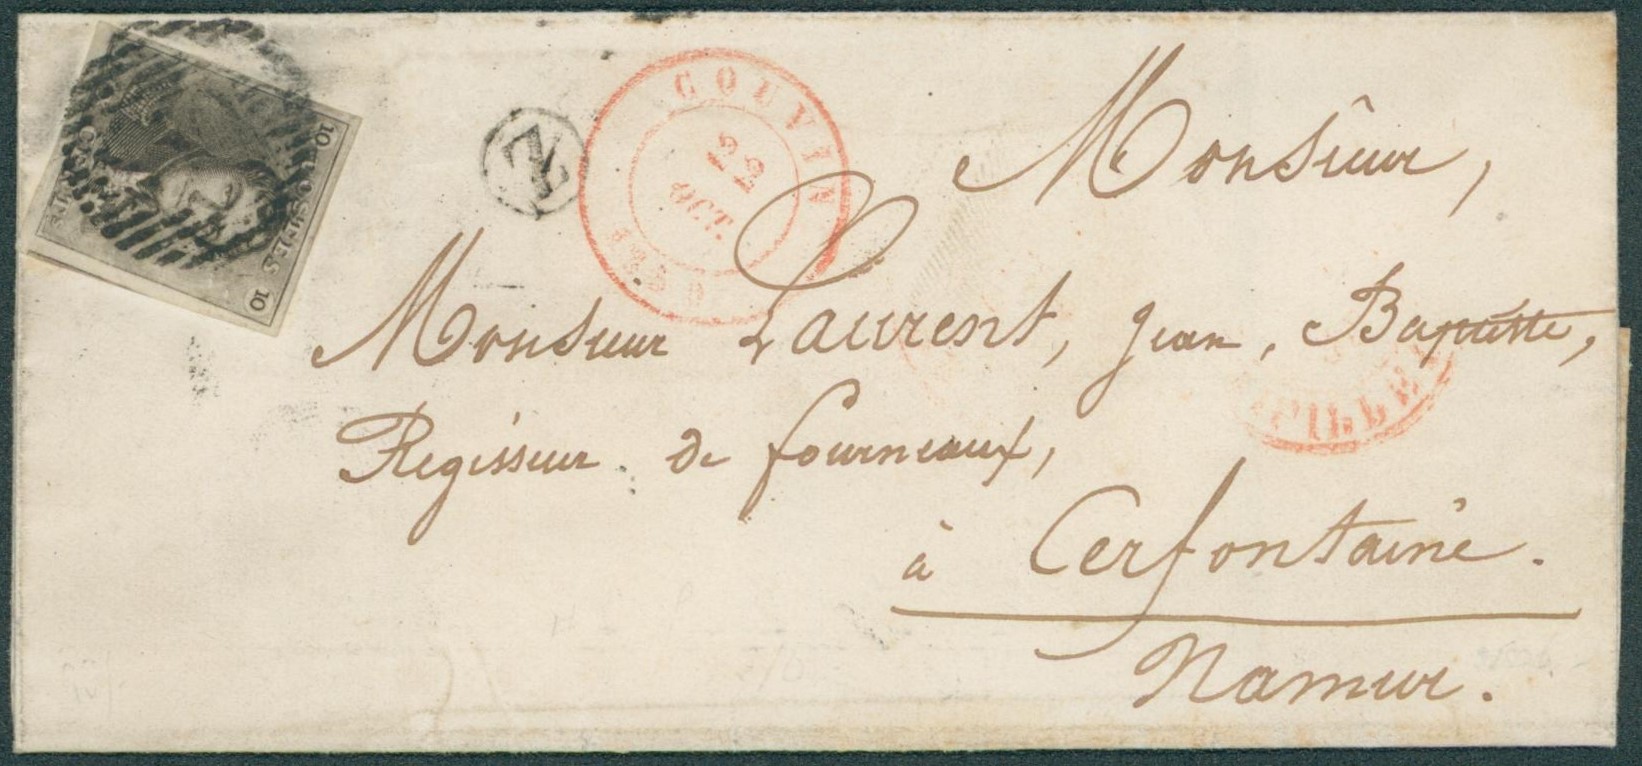 10
CENTIMES
10
Z
COUVIN
22
OCT.
Monsieur,
Monsieur Laurent, Jean, Baptiste,
Régisseur de fourneaux,
à Cerfontaine.
Namur.